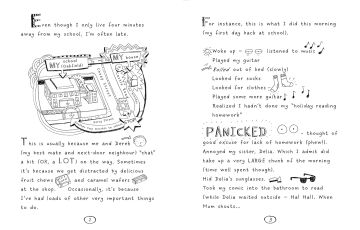 Even though I only live four minutes
away from my school, I'm often late.
MY school
(Oakfield)
MY house
This usually because me and Derek
(my best mate and next-door neighbour) "chat"
a bit (OK, a LOT) on the way. Sometimes
it's because we get distracted by delicious
fruit chews and caramel wafers
at the shop. Occasionally, it's because
I've had loads of other very important things
to do.
2
For instance, this is what I did this morning
(my first day back at school).
Woke up - listened to music
Played my guitar
Rolled out of bed (slowly)
Looked for socks
Looked for clothes
Played some more guitar
Realized I hadn't done my "holiday reading
homework"
PANICKED - thought of
good excuse for lack of homework (phew!).
Annoyed my sister, Delia. Which I admit did
take up a very LARGE chunk of the morning
(time well spent though).
Hid Delia's sunglasses.
Took my comic into the bathroom to read
(while Delia waited outside - Ha! Ha!). When
Mum shouts...
3